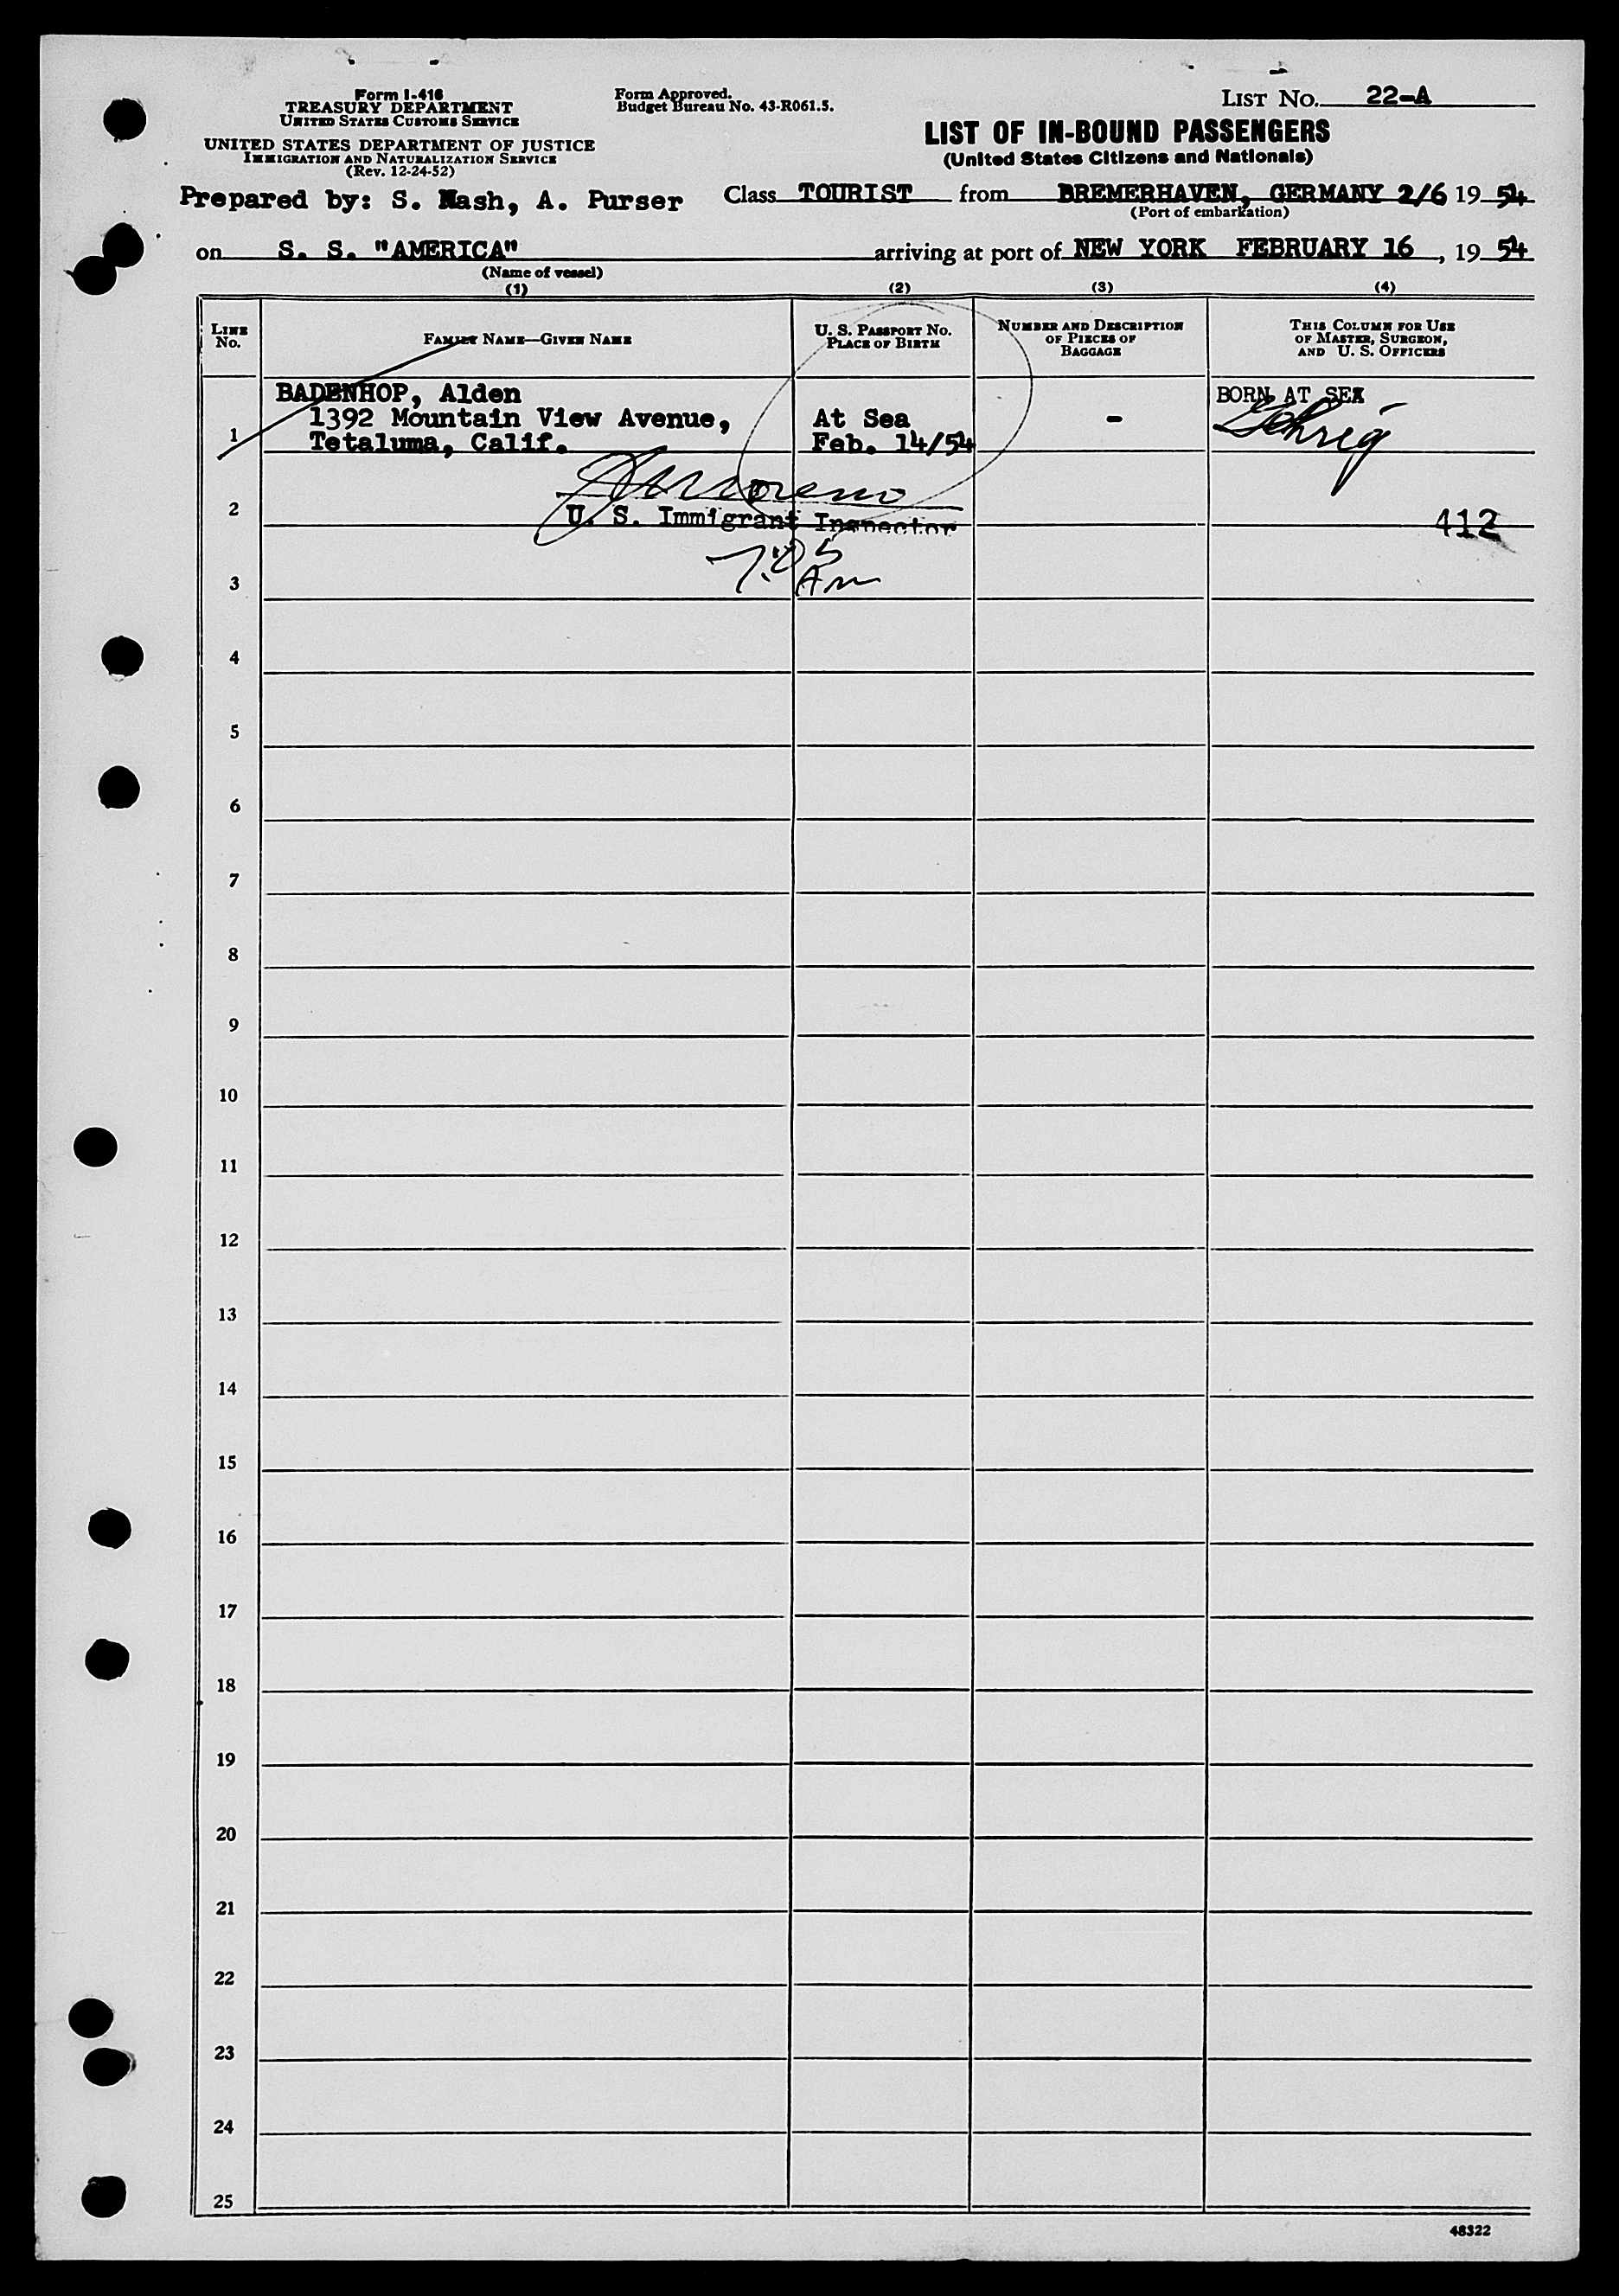 Form I-416
TREASURY DEPARTMENT
UNITED STATES CUSTOMS SERVICE
UNITED STATES DEPARTMENT OF JUSTICE
IMMIGRATION AND NATURALIZATION SERVICE
(Rev. 12-24-52)
Form Approved.
Budget Bureau No. 43-R061.5.
LIST No. 22-A
LIST OF IN-BOUND PASSENGERS
(United States Citizens and Nationals)
Prepared by: S. Nash, A. Purser
Class TOURIST from BREMERHAVEN, GERMANY 2/6 19 54
(Port of embarkation)
on S. S. "AMERICA" arriving at port of NEW YORK FEBRUARY 16, 19 54
(Name of vessel)
(1) (2) (3) (4)
LINE No.
FAMILY NAME—GIVEN NAME
U. S. PASSPORT NO.
PLACE OF BIRTH
NUMBER AND DESCRIPTION
OF PIECES OF
BAGGAGE
THIS COLUMN FOR USE
OF MASTER, SURGEON,
AND U. S. OFFICERS
1
BADENHOP, Alden
1392 Mountain View Avenue,
Tetaluma, Calif.
At Sea
Feb. 14/54
-
BORN AT SEA
Gehrig
2
Moreno
U. S. Immigrant Inspector
412
3
7:05
Am
4
5
6
7
8
9
10
11
12
13
14
15
16
17
18
19
20
21
22
23
24
25
48322